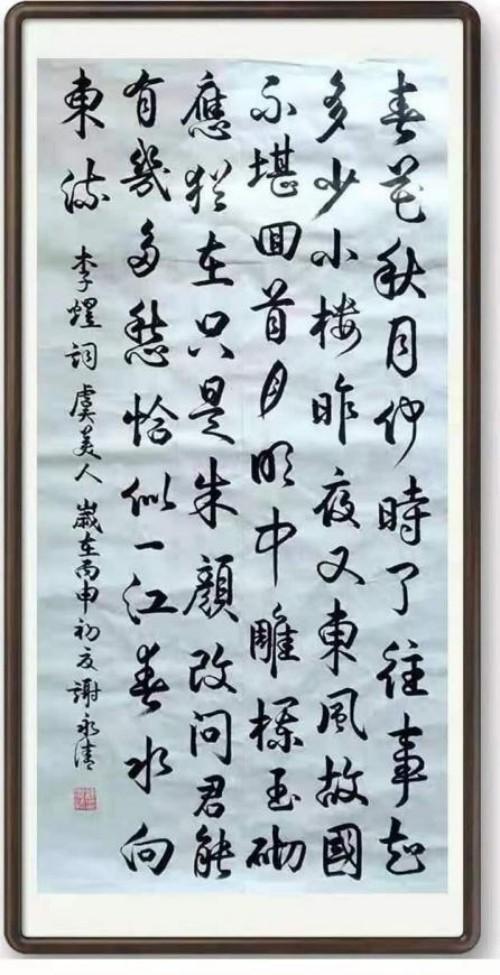 春花秋月何時了往事知
多少小楼昨夜又東風故國
不堪回首月明中雕欄玉砌
應猶在只是朱顏改問君能
有幾多愁恰似一江春水向
東流 李煜詞虞美人歲在丙申初夏謝永清